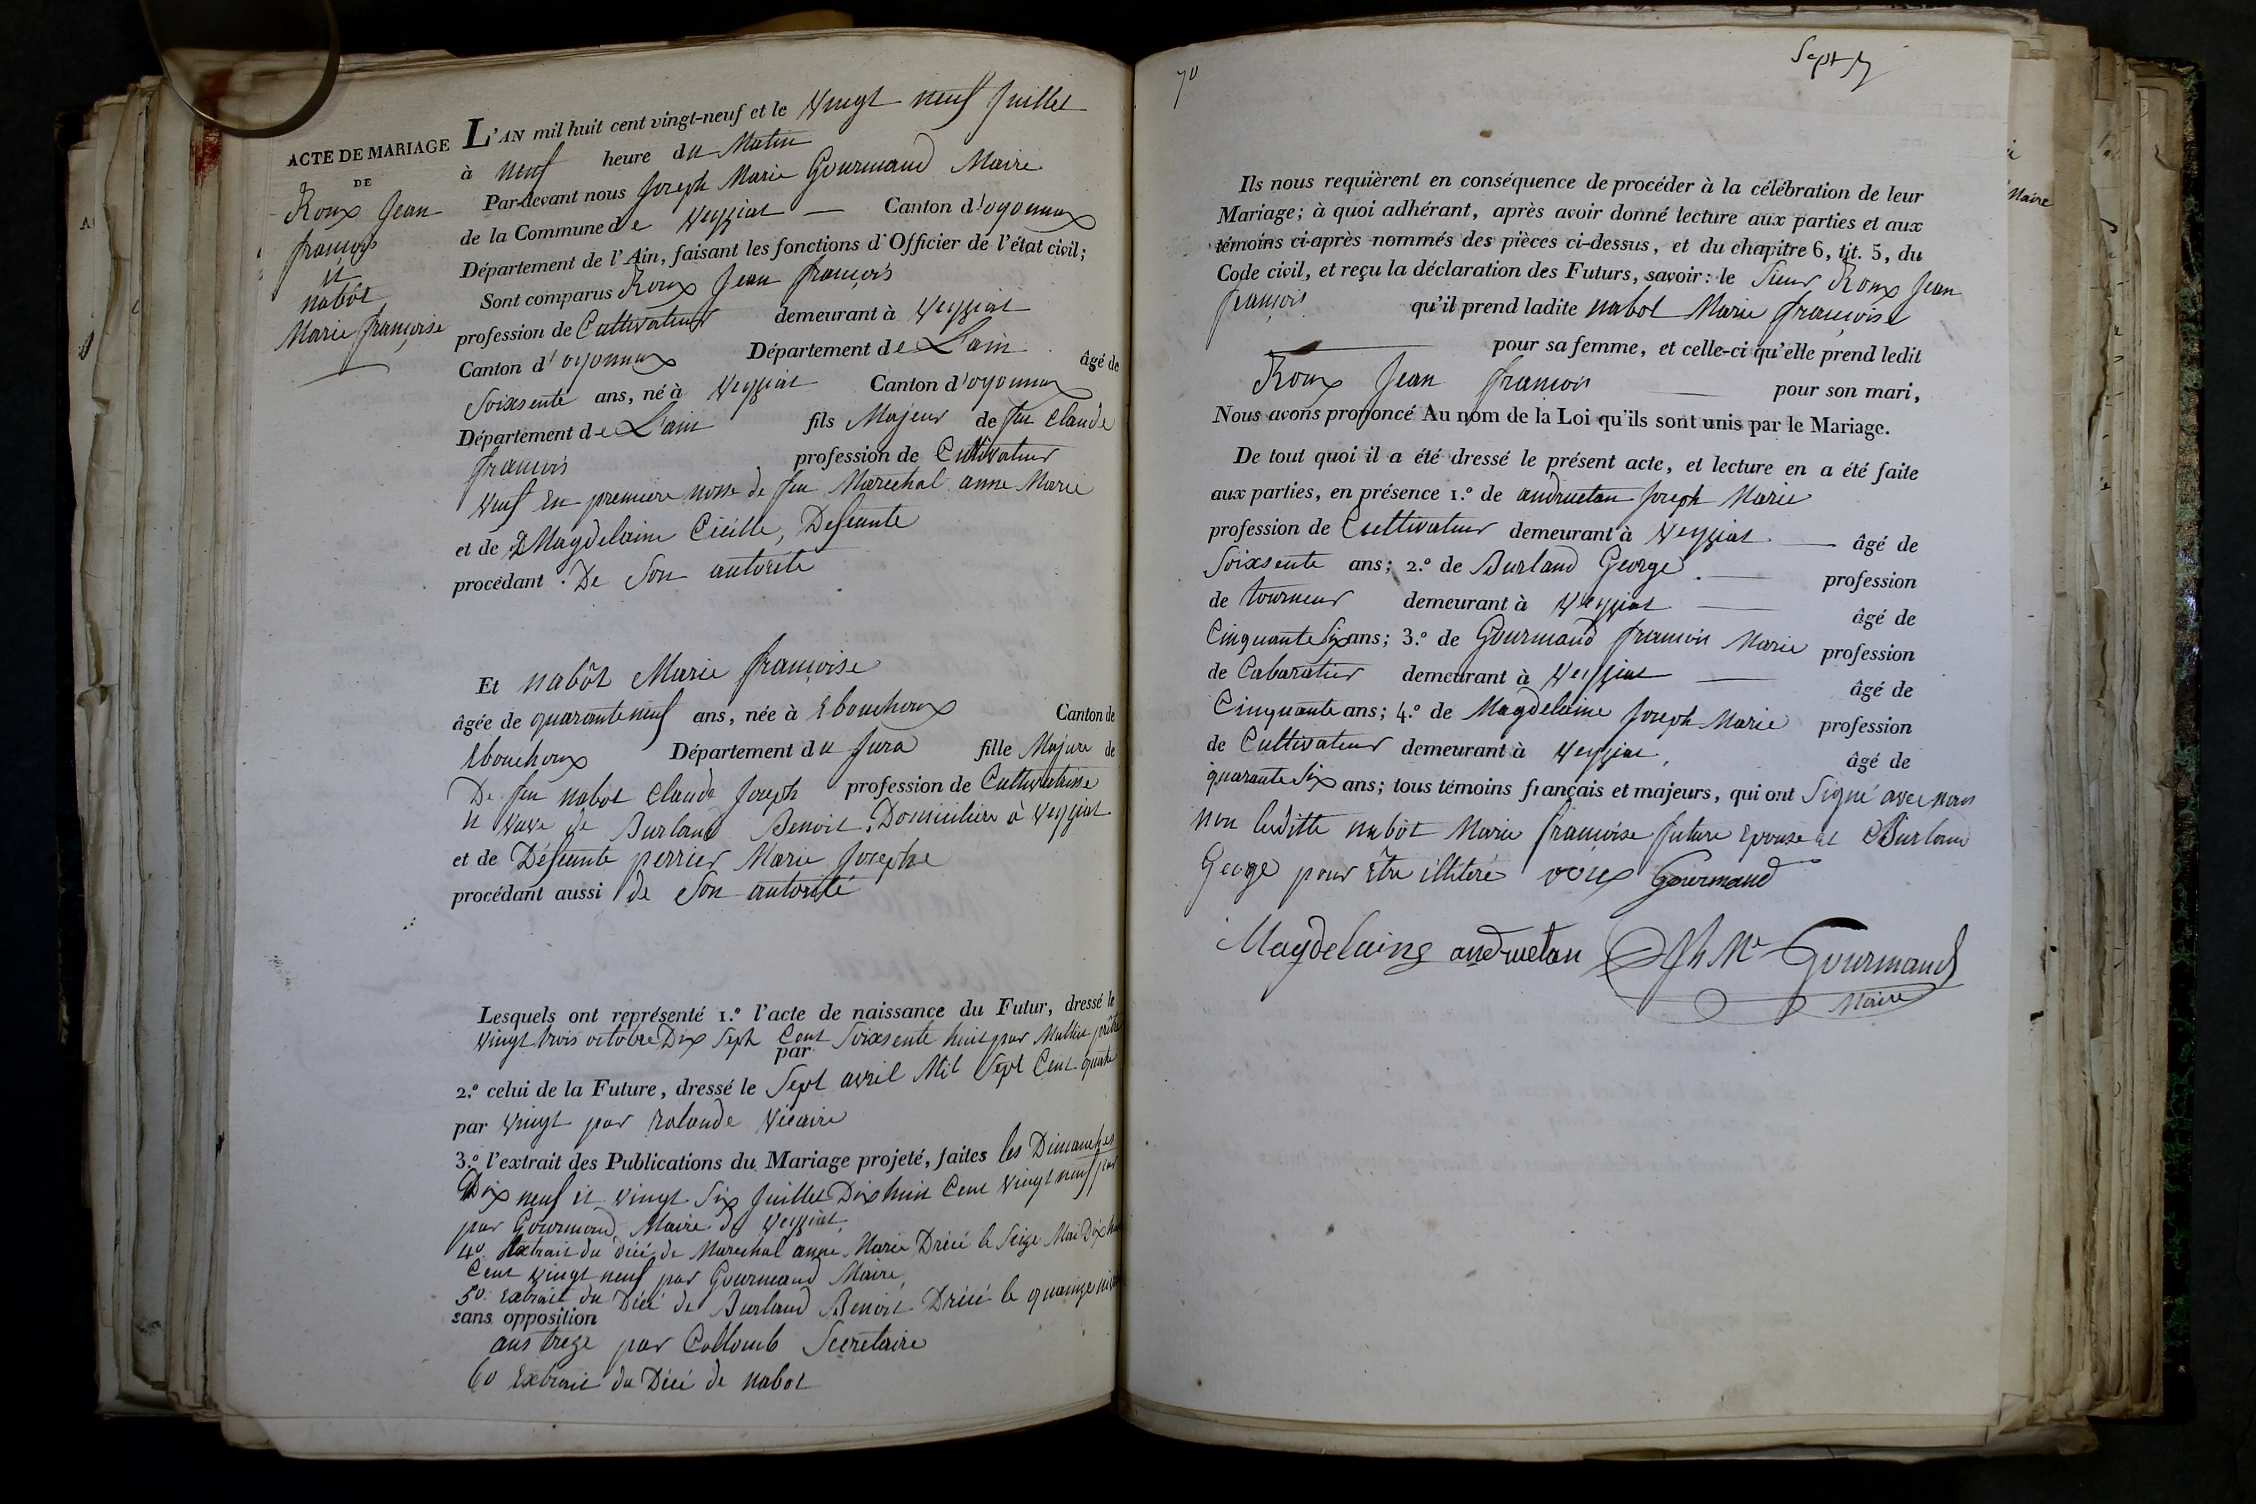 ACTE DE MARIAGE
DE
Roux Jean
françois
et
nabôt
Marie françoise
L'AN mil huit cent vingt-neuf et le Vingt neuf Juillet
à neuf heure du Matin
Par-devant nous Joseph Marie Gourmand Maire
de la Commune de Veyziat — Canton d'oyonnax
Département de l'Ain, faisant les fonctions d'Officier de l'état civil;
Sont comparus Roux Jean françois
profession de Cultivateur demeurant à Veyziat
Canton d'oyonnax Département de L'ain âgé de
Soixsente ans, né à Veyziat Canton d'oyonnax
Département de L'ain fils Majeur de feu Claude
françois profession de Cultivateur
Veuf en premiere nosse de feu Marechal anne Marie
et de Magdelaine Cécille, Defeunte
procédant . De Son autorite
Et nabôt Marie françoise
âgée de quarante neuf ans, née à Ebouchoux Canton de
Ebouchoux Département du Jura fille Majure de
De feu nabot Claude Joseph profession de Cultivatrisse
et vave de Burland Benoit. Domiciliée à Veyziat
et de Défeunte perrier Marie Josephe
procédant aussi de Son autorité
Lesquels ont représenté 1.º l'acte de naissance du Futur, dressé le
vingt trois octobre Dix Sept Cent Soixsente huit par Mathieu prêtre
par
2.º celui de la Future, dressé le Sept avril Mil Sept Cent quatre
par Vingt par Rolande Vicaire
3.º l'extrait des Publications du Mariage projeté, faites les Dimanches
Dix neuf et vingt Six Juillet Dix huit Cent Vingt neuf par
par Gourmand Maire de Veyziat.
4º Extrait du décé de Marechal anne Marie Drécé le Seize Mai Dix huit
Cent vingt neuf par Gourmand Maire,
5º Extrait du Décé de Burland Benoit Drécé le quainze
sans opposition
ans treze par Collomb Secretaire
6º Extrait du Décé de nabot
70
Sept
Ils nous requièrent en conséquence de procéder à la célébration de leur
Mariage; à quoi adhérant, après avoir donné lecture aux parties et aux
témoins ci-après nommés des pièces ci-dessus, et du chapitre 6, tit. 5, du
Code civil, et reçu la déclaration des Futurs, savoir: le Sieur Roux Jean
françois qu'il prend ladite nabot Marie françoise
pour sa femme, et celle-ci qu'elle prend ledit
Roux Jean francois — pour son mari,
Nous avons prononcé Au nom de la Loi qu'ils sont unis par le Mariage.
De tout quoi il a été dressé le présent acte, et lecture en a été faite
aux parties, en présence 1.º de andruetan Joseph Marie
profession de Cultivateur demeurant à Veyziat — âgé de
Soixsente ans; 2.º de Burland George — profession
de tourneur demeurant à Veyziat — âgé de
Cinquante Six ans; 3.º de Gourmand francois Marie profession
de Cabaratier demeurant à Veyziat — âgé de
Cinquante ans; 4.º de Magdelaine Joseph Marie profession
de Cultivateur demeurant à Veyziat, âgé de
quarante Six ans; tous témoins français et majeurs, qui ont Signé avec nous
non laditte nabôt Marie françoise future Epouse et Burland
George pour être illitéré roux Gourmand
Magdelaine andruetan Jh Me Gourmand
Maire
Maire